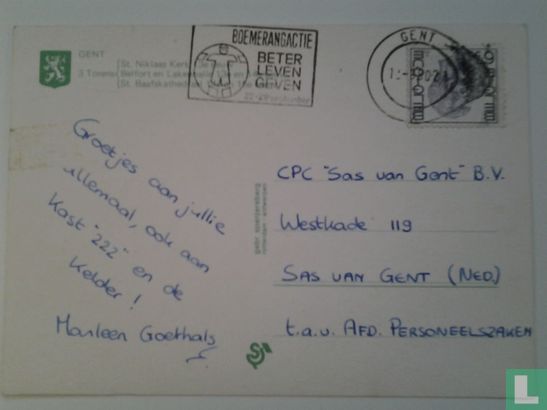 GENT
St. Niklaas Kerk
3 Torens Belfort en Lakenhalle
St. Baafskathedraal
BOEMERANGACTIE
BETER
LEVEN
GEVEN
GENT
Groetjes aan jullie
allemaal, ook aan
Kast "222" en de
Kelder!
Marleen Goethals
CPC "Sas van Gent" B.V.
Westkade 119
SAS VAN GENT (NED.)
t.a.v. AFD. PERSONEELSZAKEN
L